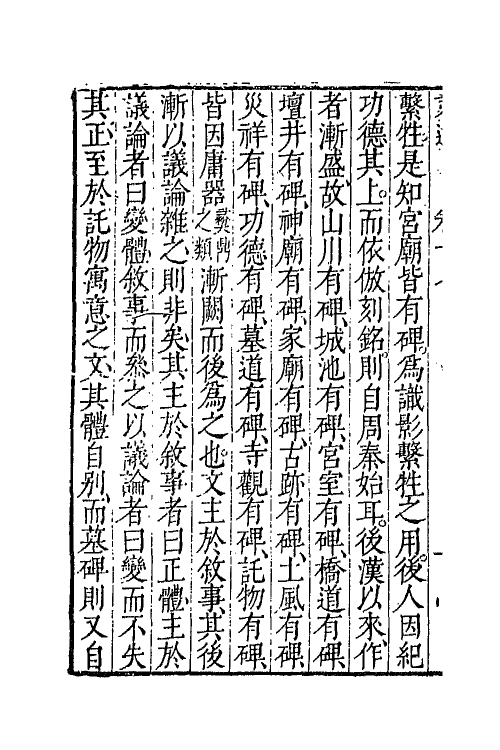 繫牲是知宮廟皆有碑、爲識影繫牲之用。後人因紀
功德其上。而依倣刻銘則自周秦始耳。後漢以來、作
者漸盛、故山川有碑、城池有碑、宮室有碑、橋道有碑、
壇井有碑、神廟有碑、家廟有碑、古跡有碑、土風有碑、
災祥有碑、功德有碑、墓道有碑、寺觀有碑、託物有碑、
皆因庸器彛鼎之類漸闕而後爲之也。文主於敘事、其後
漸以議論雜之則非矣。其主於敘事者曰正體、主於
議論者曰變體、敘事而叅之以議論者曰變而不失
其正、至於託物寓意之文、其體自別、而墓碑則又自